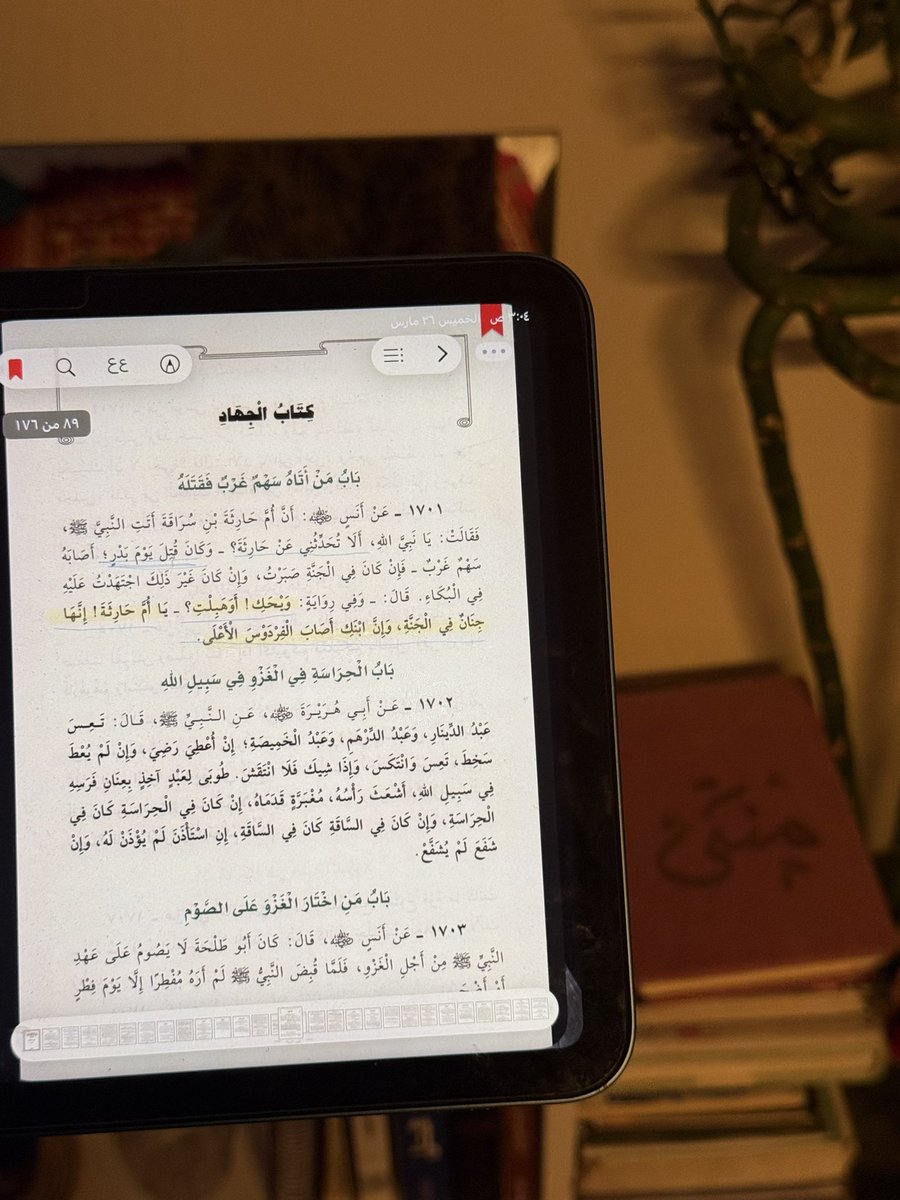 ٣:٠٤ ص الخميس ٢٦ مارس
عع
٨٩ من ١٧٦
كِتَابُ الْجِهَادِ
بَابُ مَنْ أَتَاهُ سَهْمٌ غَرْبٌ فَقَتَلَهُ
١٧٠١ ـ عَنْ أَنَسٍ رضي الله عنه: أَنَّ أُمَّ حَارِثَةَ بْنِ سُرَاقَةَ أَتَتِ النَّبِيَّ ﷺ،
فَقَالَتْ: يَا نَبِيَّ اللهِ، أَلَا تُحَدِّثُنِي عَنْ حَارِثَةَ؟ ـ وَكَانَ قُتِلَ يَوْمَ بَدْرٍ؛ أَصَابَهُ
سَهْمٌ غَرْبٌ ـ فَإِنْ كَانَ فِي الْجَنَّةِ صَبَرْتُ، وَإِنْ كَانَ غَيْرَ ذَلِكَ اجْتَهَدْتُ عَلَيْهِ
فِي الْبُكَاءِ. قَالَ: ـ وَفِي رِوَايَةٍ: وَيْحَكِ! أَوَهَبِلْتِ؟ ـ يَا أُمَّ حَارِثَةَ! إِنَّهَا
جِنَانٌ فِي الْجَنَّةِ، وَإِنَّ ابْنَكِ أَصَابَ الْفِرْدَوْسَ الْأَعْلَى.
بَابُ الْحِرَاسَةِ فِي الْغَزْوِ فِي سَبِيلِ اللهِ
١٧٠٢ ـ عَنْ أَبِي هُرَيْرَةَ رضي الله عنه، عَنِ النَّبِيِّ ﷺ، قَالَ: تَعِسَ
عَبْدُ الدِّينَارِ، وَعَبْدُ الدِّرْهَمِ، وَعَبْدُ الْخَمِيصَةِ؛ إِنْ أُعْطِيَ رَضِيَ، وَإِنْ لَمْ يُعْطَ
سَخِطَ، تَعِسَ وَانْتَكَسَ، وَإِذَا شِيكَ فَلَا انْتَقَشَ. طُوبَى لِعَبْدٍ آخِذٍ بِعِنَانِ فَرَسِهِ
فِي سَبِيلِ اللهِ، أَشْعَثَ رَأْسُهُ، مُغْبَرَّةٍ قَدَمَاهُ، إِنْ كَانَ فِي الْحِرَاسَةِ كَانَ فِي
الْحِرَاسَةِ، وَإِنْ كَانَ فِي السَّاقَةِ كَانَ فِي السَّاقَةِ، إِنِ اسْتَأْذَنَ لَمْ يُؤْذَنْ لَهُ، وَإِنْ
شَفَعَ لَمْ يُشَفَّعْ.
بَابُ مَنِ اخْتَارَ الْغَزْوَ عَلَى الصَّوْمِ
١٧٠٣ ـ عَنْ أَنَسٍ رضي الله عنه، قَالَ: كَانَ أَبُو طَلْحَةَ لَا يَصُومُ عَلَى عَهْدِ
النَّبِيِّ ﷺ مِنْ أَجْلِ الْغَزْوِ، فَلَمَّا قُبِضَ النَّبِيُّ ﷺ لَمْ أَرَهُ مُفْطِرًا إِلَّا يَوْمَ فِطْرٍ
أَوْ أَضْحَى